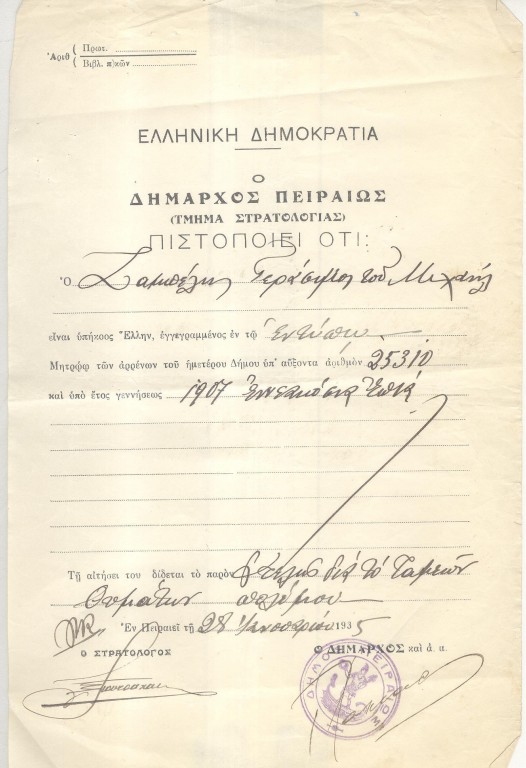 Ἀριθ { Πρωτ.
Βιβλ. π)κῶν
ΕΛΛΗΝΙΚΗ ΔΗΜΟΚΡΑΤΙΑ
Ο
ΔΗΜΑΡΧΟΣ ΠΕΙΡΑΙΩΣ
(ΤΜΗΜΑ ΣΤΡΑΤΟΛΟΓΙΑΣ)
ΠΙΣΤΟΠΟΙΕΙ ΟΤΙ:
Ὁ Γεράσιμος τοῦ Μιχαήλ
εἶναι ὑπήκοος Ἕλλην, ἐγγεγραμμένος ἐν τῷ
Μητρῴῳ τῶν ἀρρένων τοῦ ἡμετέρου Δήμου ὑπ' αὔξοντα ἀριθμὸν 25310
καὶ ὑπὸ ἔτος γεννήσεως 1907 Ἐννεακόσια Ἑπτά
Τῇ αἰτήσει του δίδεται τὸ παρὸν διὰ τὸ Ταμεῖον
Θυμάτων πολέμου
Ἐν Πειραιεῖ τῇ 28 Ἰανουαρίου 1935
Ο ΣΤΡΑΤΟΛΟΓΟΣ Ο ΔΗΜΑΡΧΟΣ καὶ ἀ. α.
ΔΗΜΟΣ ΠΕΙΡΑΙΩΣ